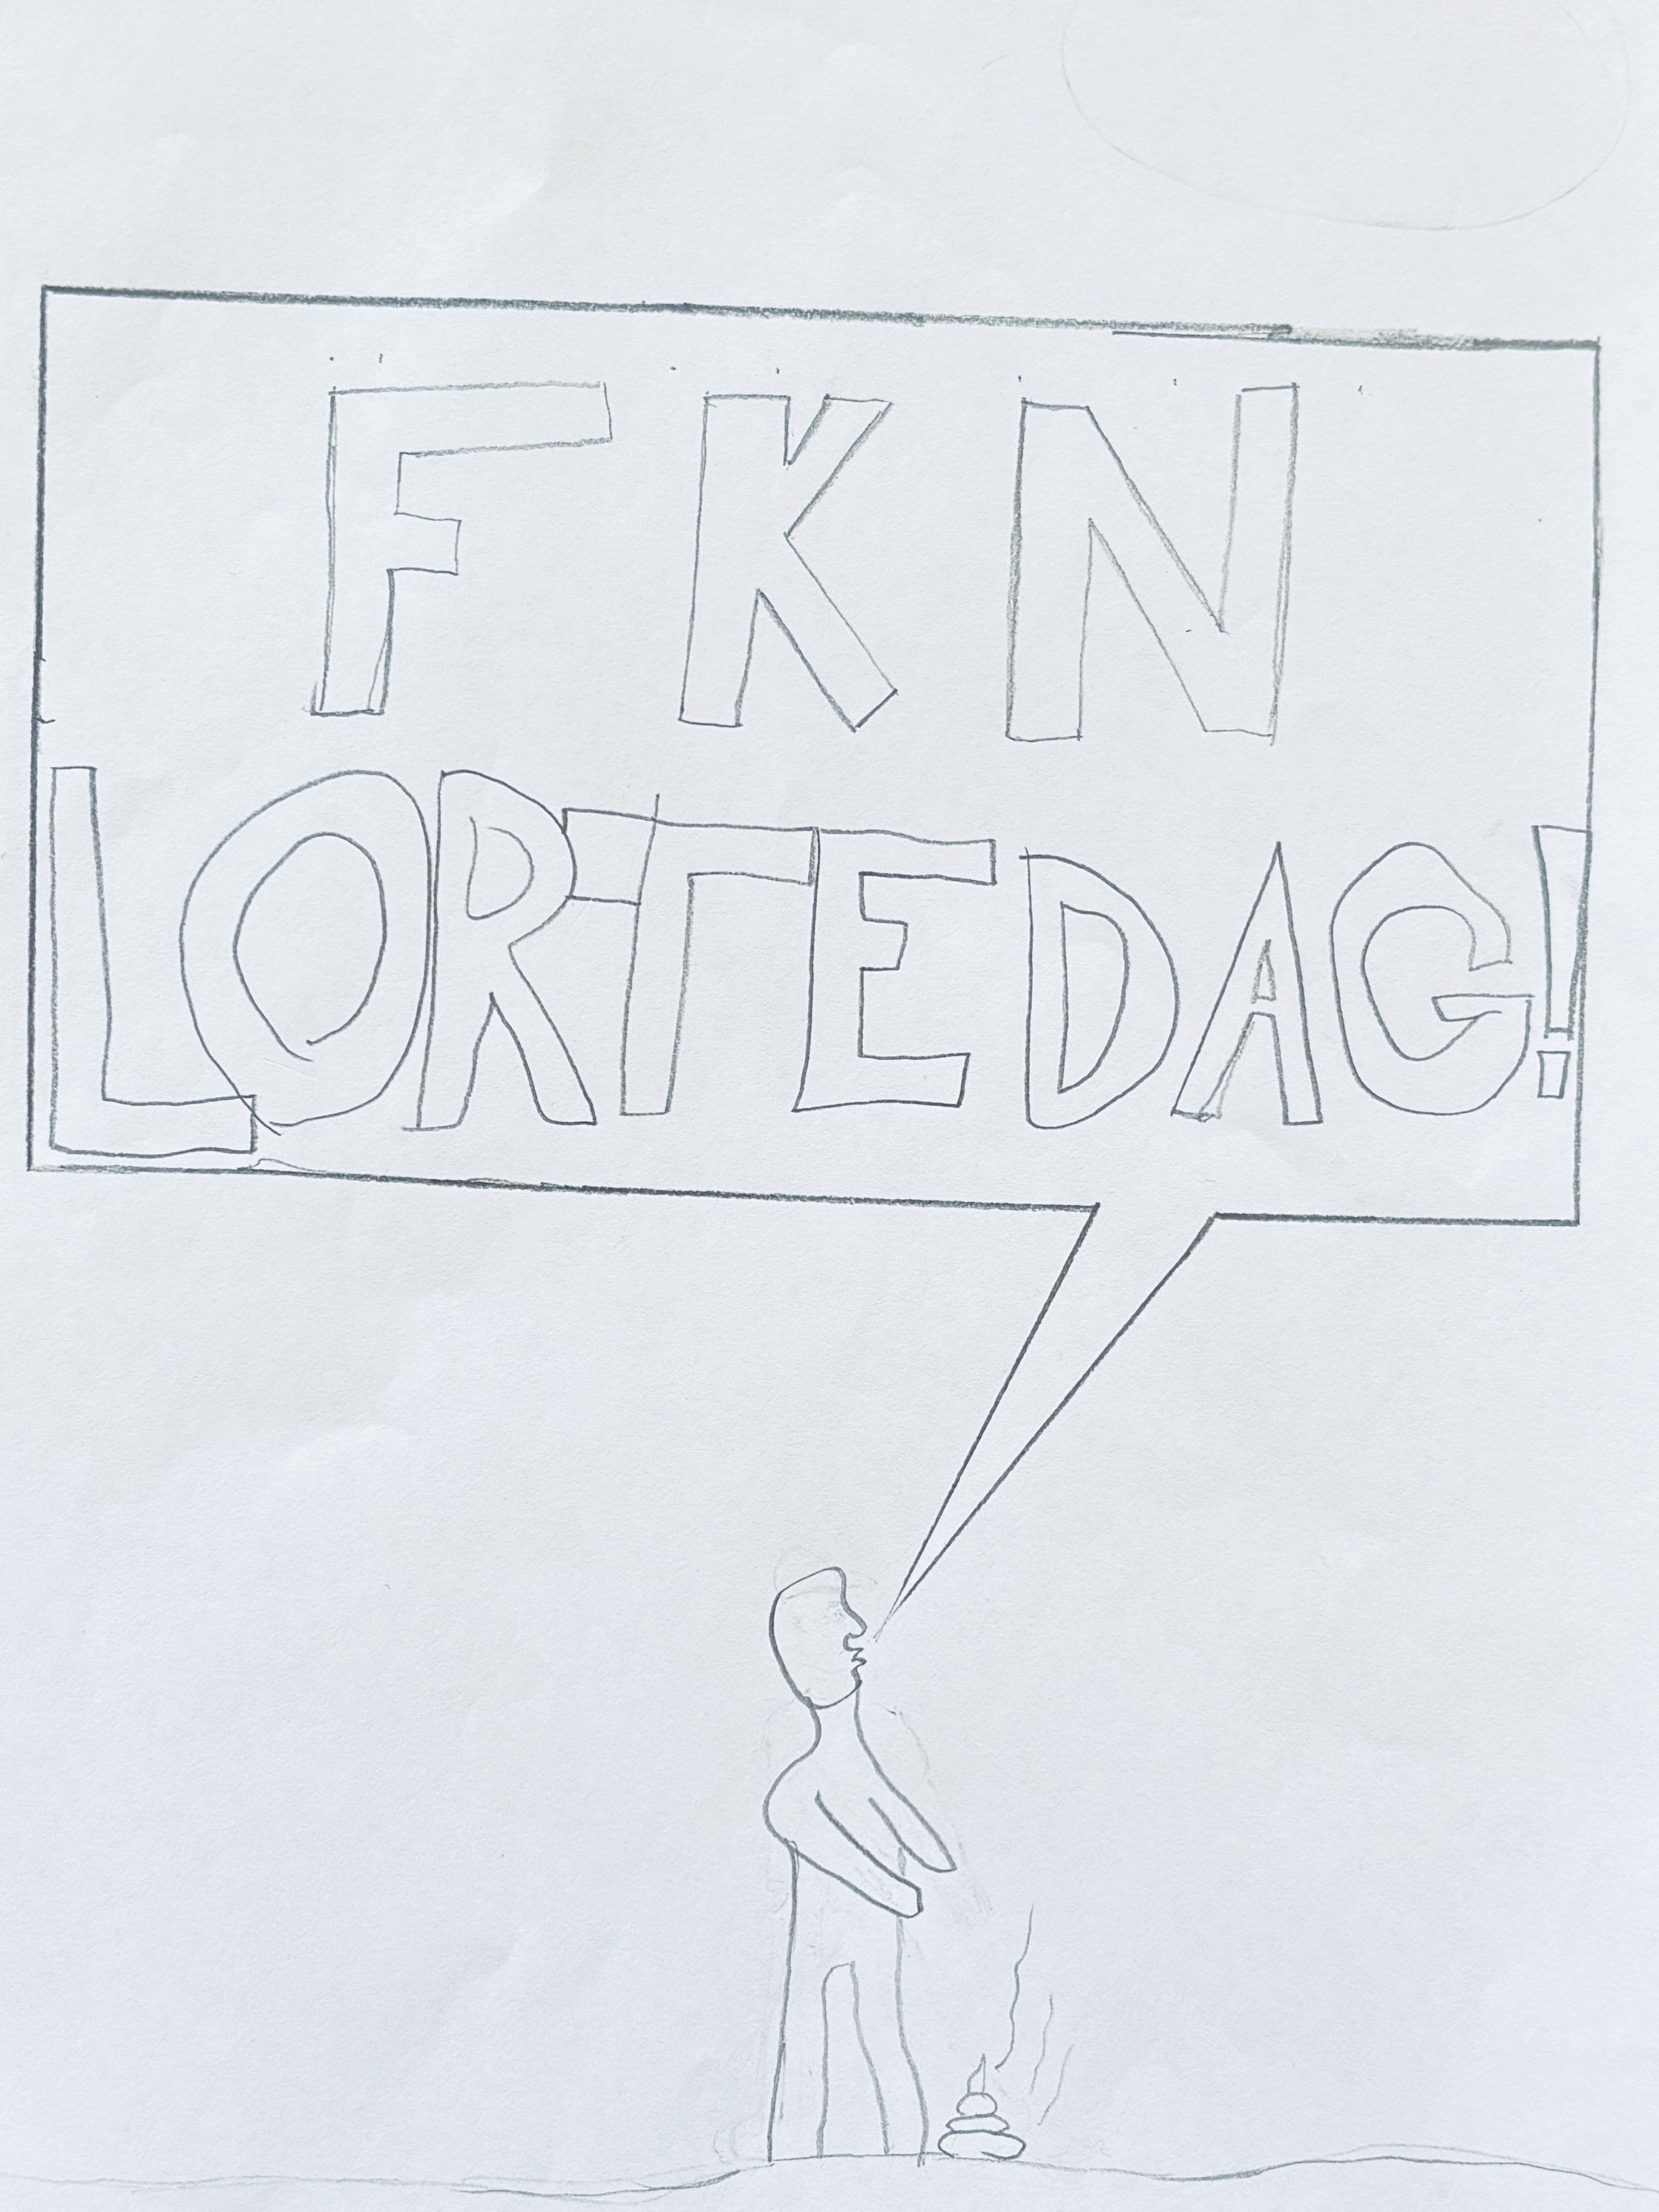 FKN
LORTEDAG!